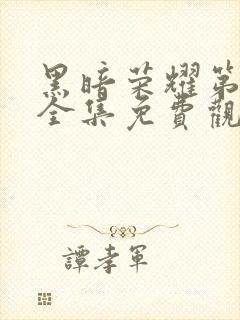 黑暗荣耀第
全集免費觀
譚孝軍